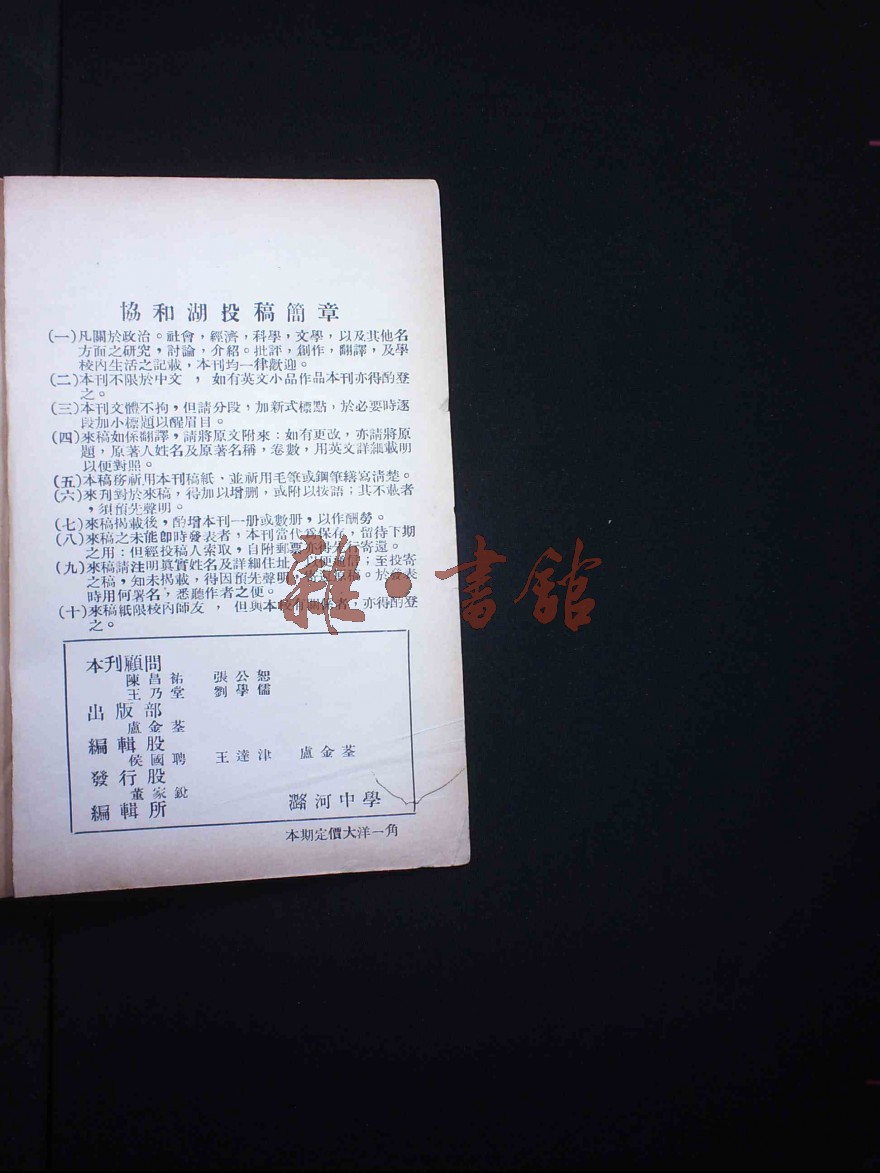 協和湖投稿簡章
(一)凡關於政治。社會，經濟，科學，文學，以及其他名
方面之研究，討論，介紹。批評，創作，翻譯，及學
校內生活之記載，本刊均一律歡迎。
(二)本刊不限於中文，如有英文小品作品本刊亦得酌登
之。
(三)本刊文體不拘，但請分段，加新式標點，於必要時逐
段加小標題以醒眉目。
(四)來稿如係翻譯，請將原文附來：如有更改，亦請將原
題，原著人姓名及原著名稱，卷數，用英文詳細載明
以便對照。
(五)本稿務祈用本刊稿紙．並祈用毛筆或鋼筆繕寫清楚。
(六)來刋對於來稿，得加以增删，或附以按語；其不載者
，須預先聲明。
(七)來稿揭載後，酌增本刊一册或數册，以作酬勞。
(八)來稿之未能卽時發表者，本刊當代爲保存，留待下期
之用：但經投稿人索取，自附郵票亦得先行寄還。
(九)來稿請注明眞實姓名及詳細住址，以便通信；至投寄
之稿，知未揭載，得因預先聲明，寄還原稿。於發表
時用何署名，悉聽作者之便。
(十)來稿紙限校內師友，但與本校有關係者，亦得酌登
之。
本刋顧問
陳昌祐 張公恕
王乃堂 劉學儒
出版部
盧金荃
編輯股
侯國聘 王達津 盧金荃
發行股
董家銳
編輯所 潞河中學
本期定價大洋一角
雜·書館